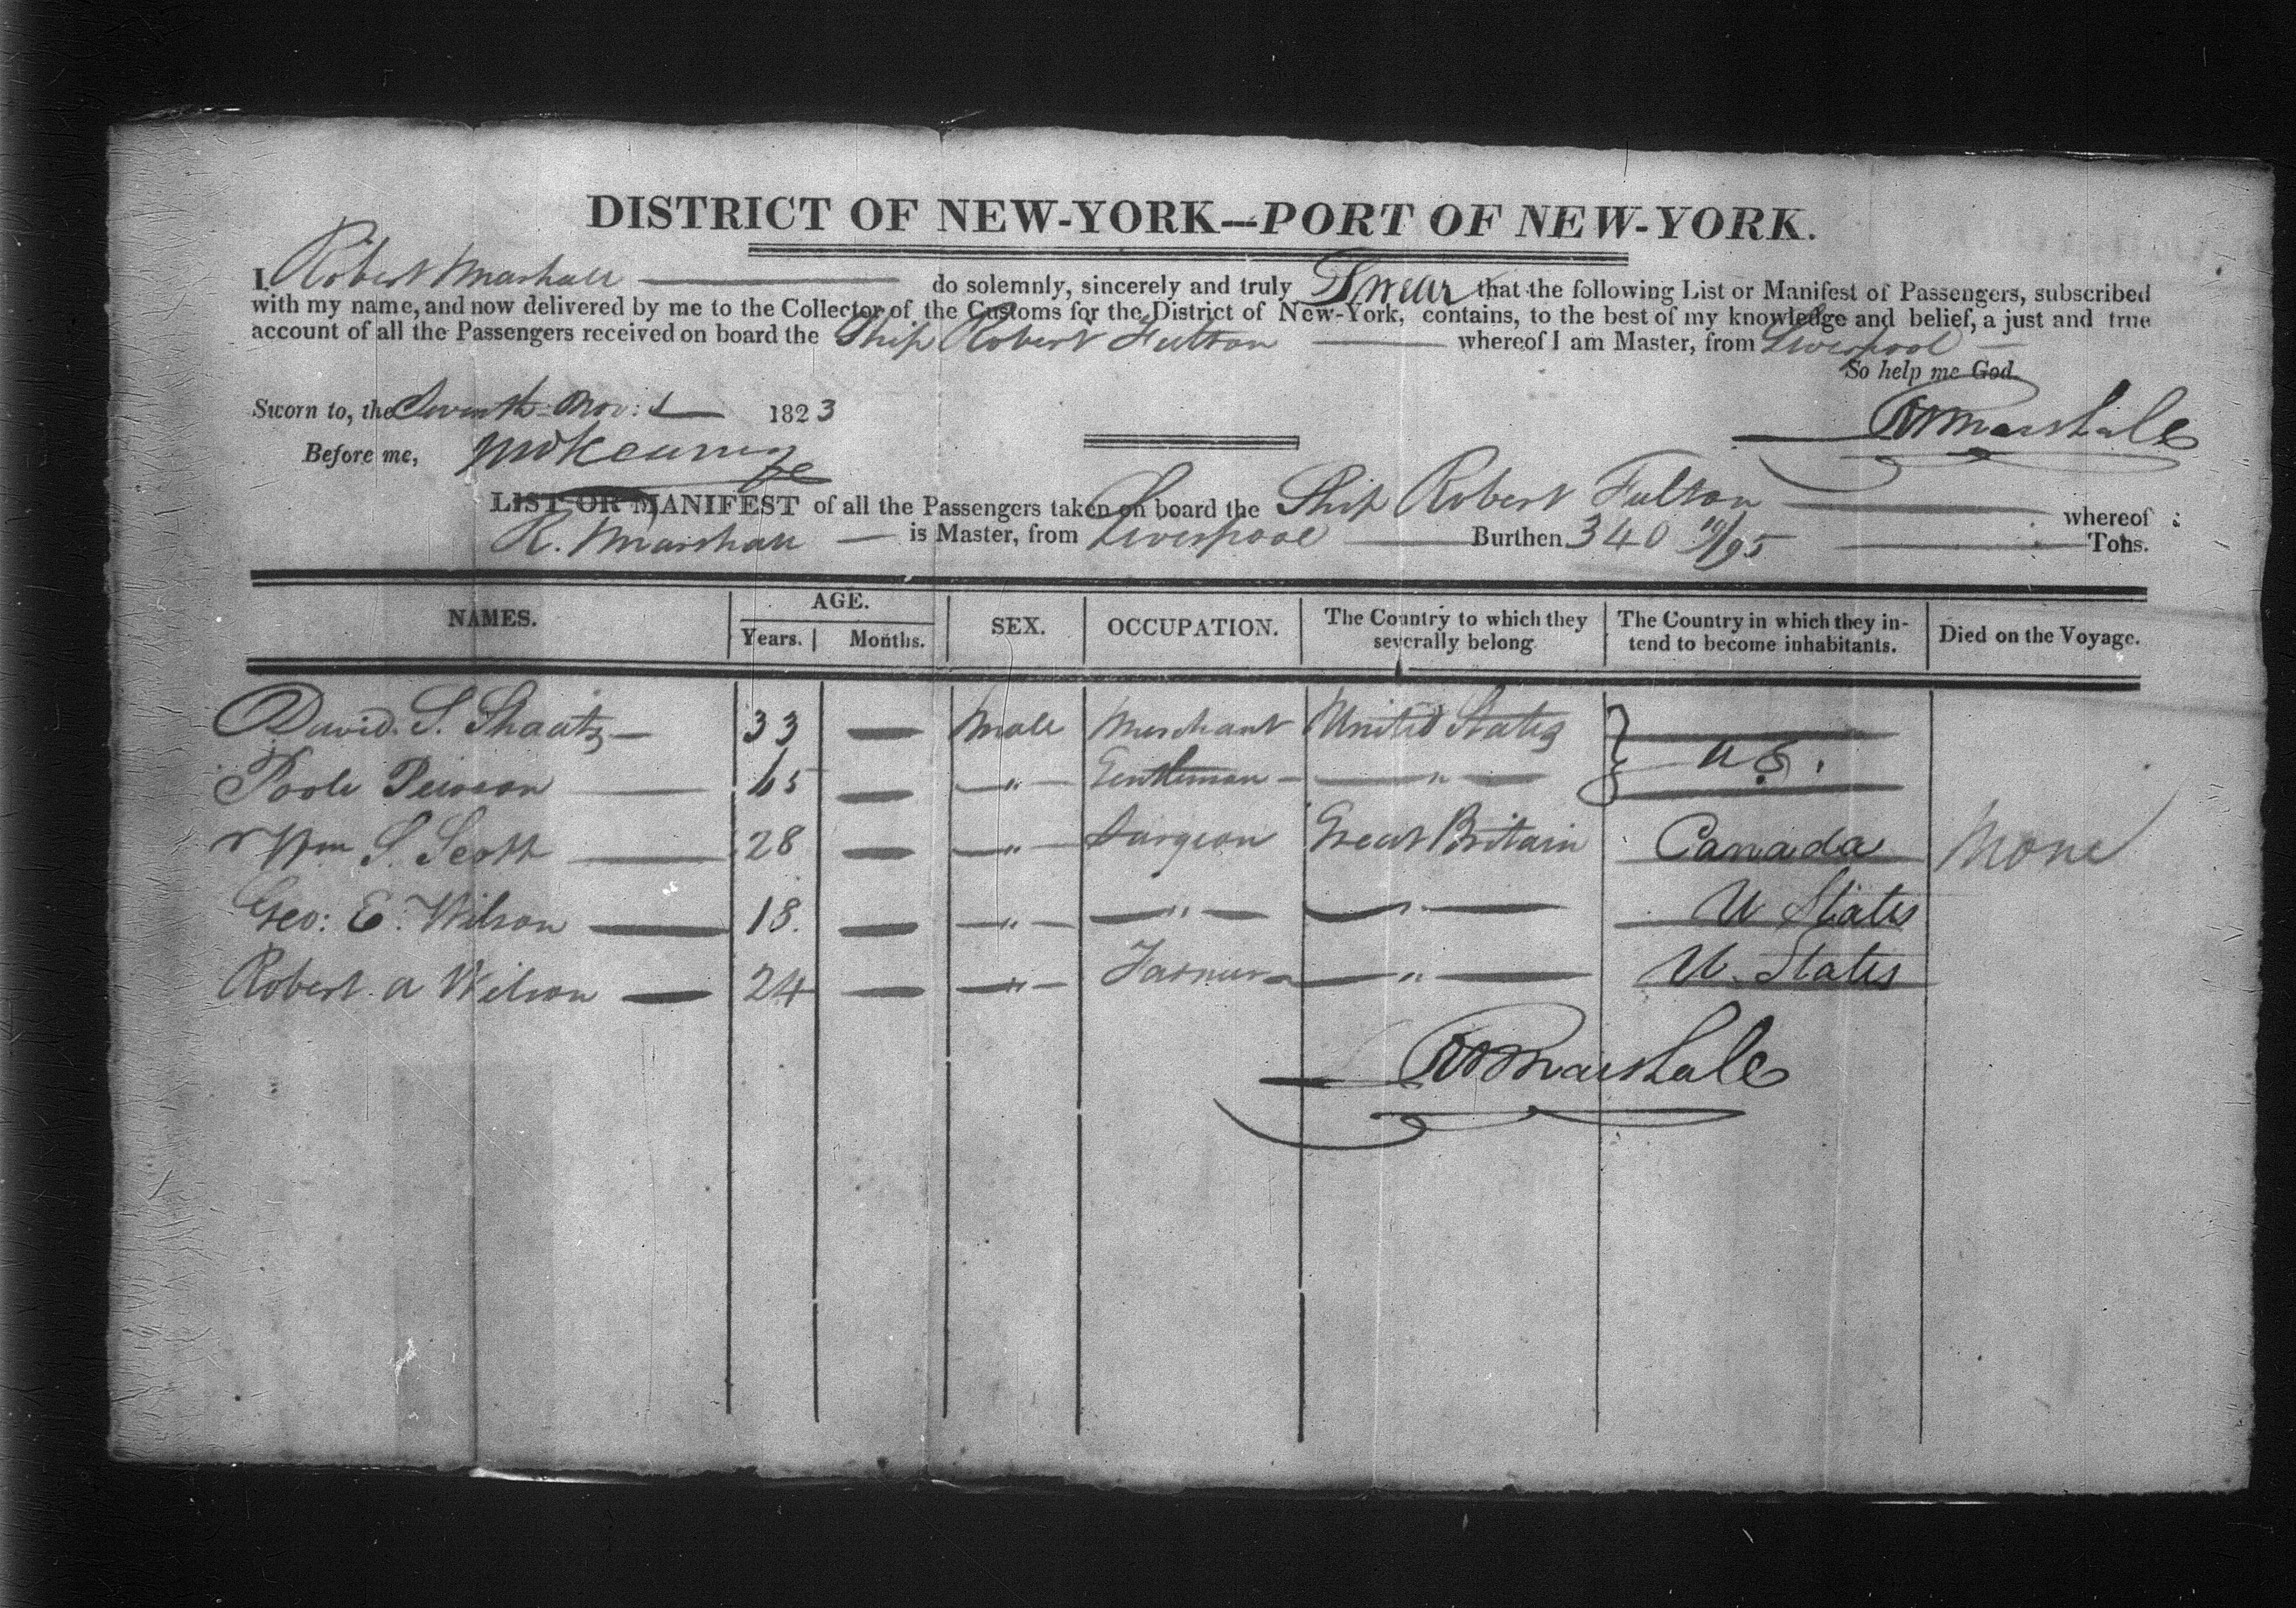 DISTRICT OF NEW-YORK—PORT OF NEW-YORK.
I, Robert Marshall do solemnly, sincerely and truly Swear that the following List or Manifest of Passengers, subscribed
with my name, and now delivered by me to the Collector of the Customs for the District of New-York, contains, to the best of my knowledge and belief, a just and true
account of all the Passengers received on board the Ship Robert Fulton whereof I am Master, from Liverpool
So help me God.
Sworn to, the Seventh Nov: 1823
R Marshall
Before me,
LIST OR MANIFEST of all the Passengers taken on board the Ship Robert Fulton whereof
R. Marshall — is Master, from Liverpool Burthen 340 /95 Tons.
NAMES. AGE. SEX. OCCUPATION. The Country to which they severally belong The Country in which they intend to become inhabitants. Died on the Voyage.
Years. Months.
David. S. Shaatz — 33 — Male Merchant United States
Poole 65 — " — Gentleman — " — U S.
Wm S. Scott — 28 — " — Surgeon Great Britain Canada None
Geo: E. Wilson — 18. — " — " — " — U States
Robert. A Wilson — 24 — " — Farmer — " — U. States
R Marshall